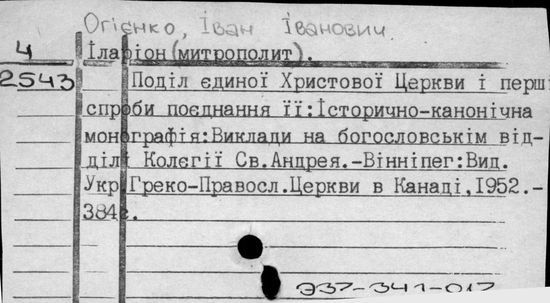 Огієнко, Іван Іванович
4 Іларіон(митрополит).
2543 Поділ єдиної Христової Церкви і перші
спроби поєднання її:Історично-канонічна
монографія:Виклади на богословськім від-
ділі Колєгії Св.Андрея.-Вінніпег:Вид.
Укр.Греко-Правосл.Церкви в Канаді,1952.-
384с.
937-341-017